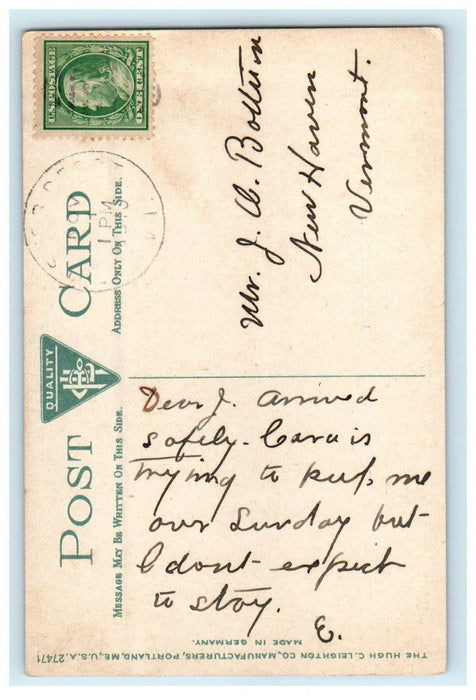 U.S. POSTAGE
ONE CENT
1 PM
POST CARD
QUALITY
MESSAGE MAY BE WRITTEN ON THIS SIDE.
ADDRESS ONLY ON THIS SIDE.
Mr. J. A. Bottum
New Haven
Vermont.
Dear J. Arrived
safely. Cara is
trying to keep me
over Sunday but
I dont expect
to stay.
E.
THE HUGH C. LEIGHTON CO., MANUFACTURERS, PORTLAND, ME., U.S.A. 27471
MADE IN GERMANY.